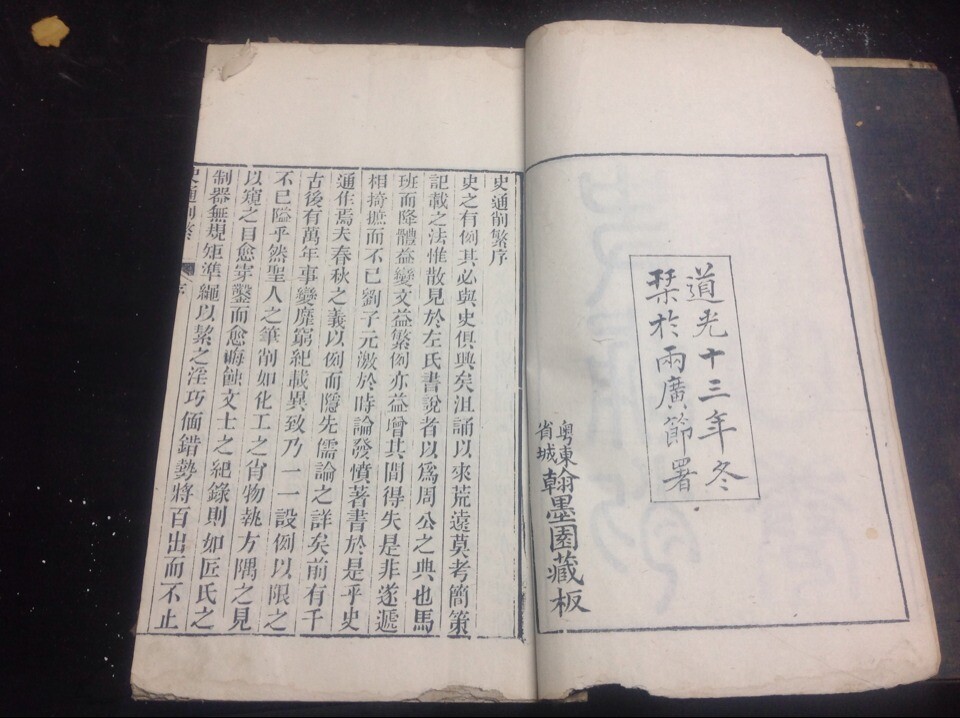 道光十三年冬
栞於兩廣節署
粵東
省城
翰墨園藏板
史通削繁序
史之有例其必與史俱興矣沮誦以來荒遠莫考簡策
記載之法惟散見於左氏書說者以爲周公之典也馬
班而降體益變文益繁例亦益增其間得失是非遂遞
相掎摭而不已劉子元激於時論發憤著書於是乎史
通作焉夫春秋之義以例而隱先儒論之詳矣前有千
古後有萬年事變靡窮紀載異致乃一一設例以限之
不已隘乎然聖人之筆削如化工之肖物執方隅之見
以窺之自愈穿鑿而愈晦蝕文士之紀錄則如匠氏之
制器無規矩準繩以絜之淫巧偭錯勢將百出而不止
史通削繁